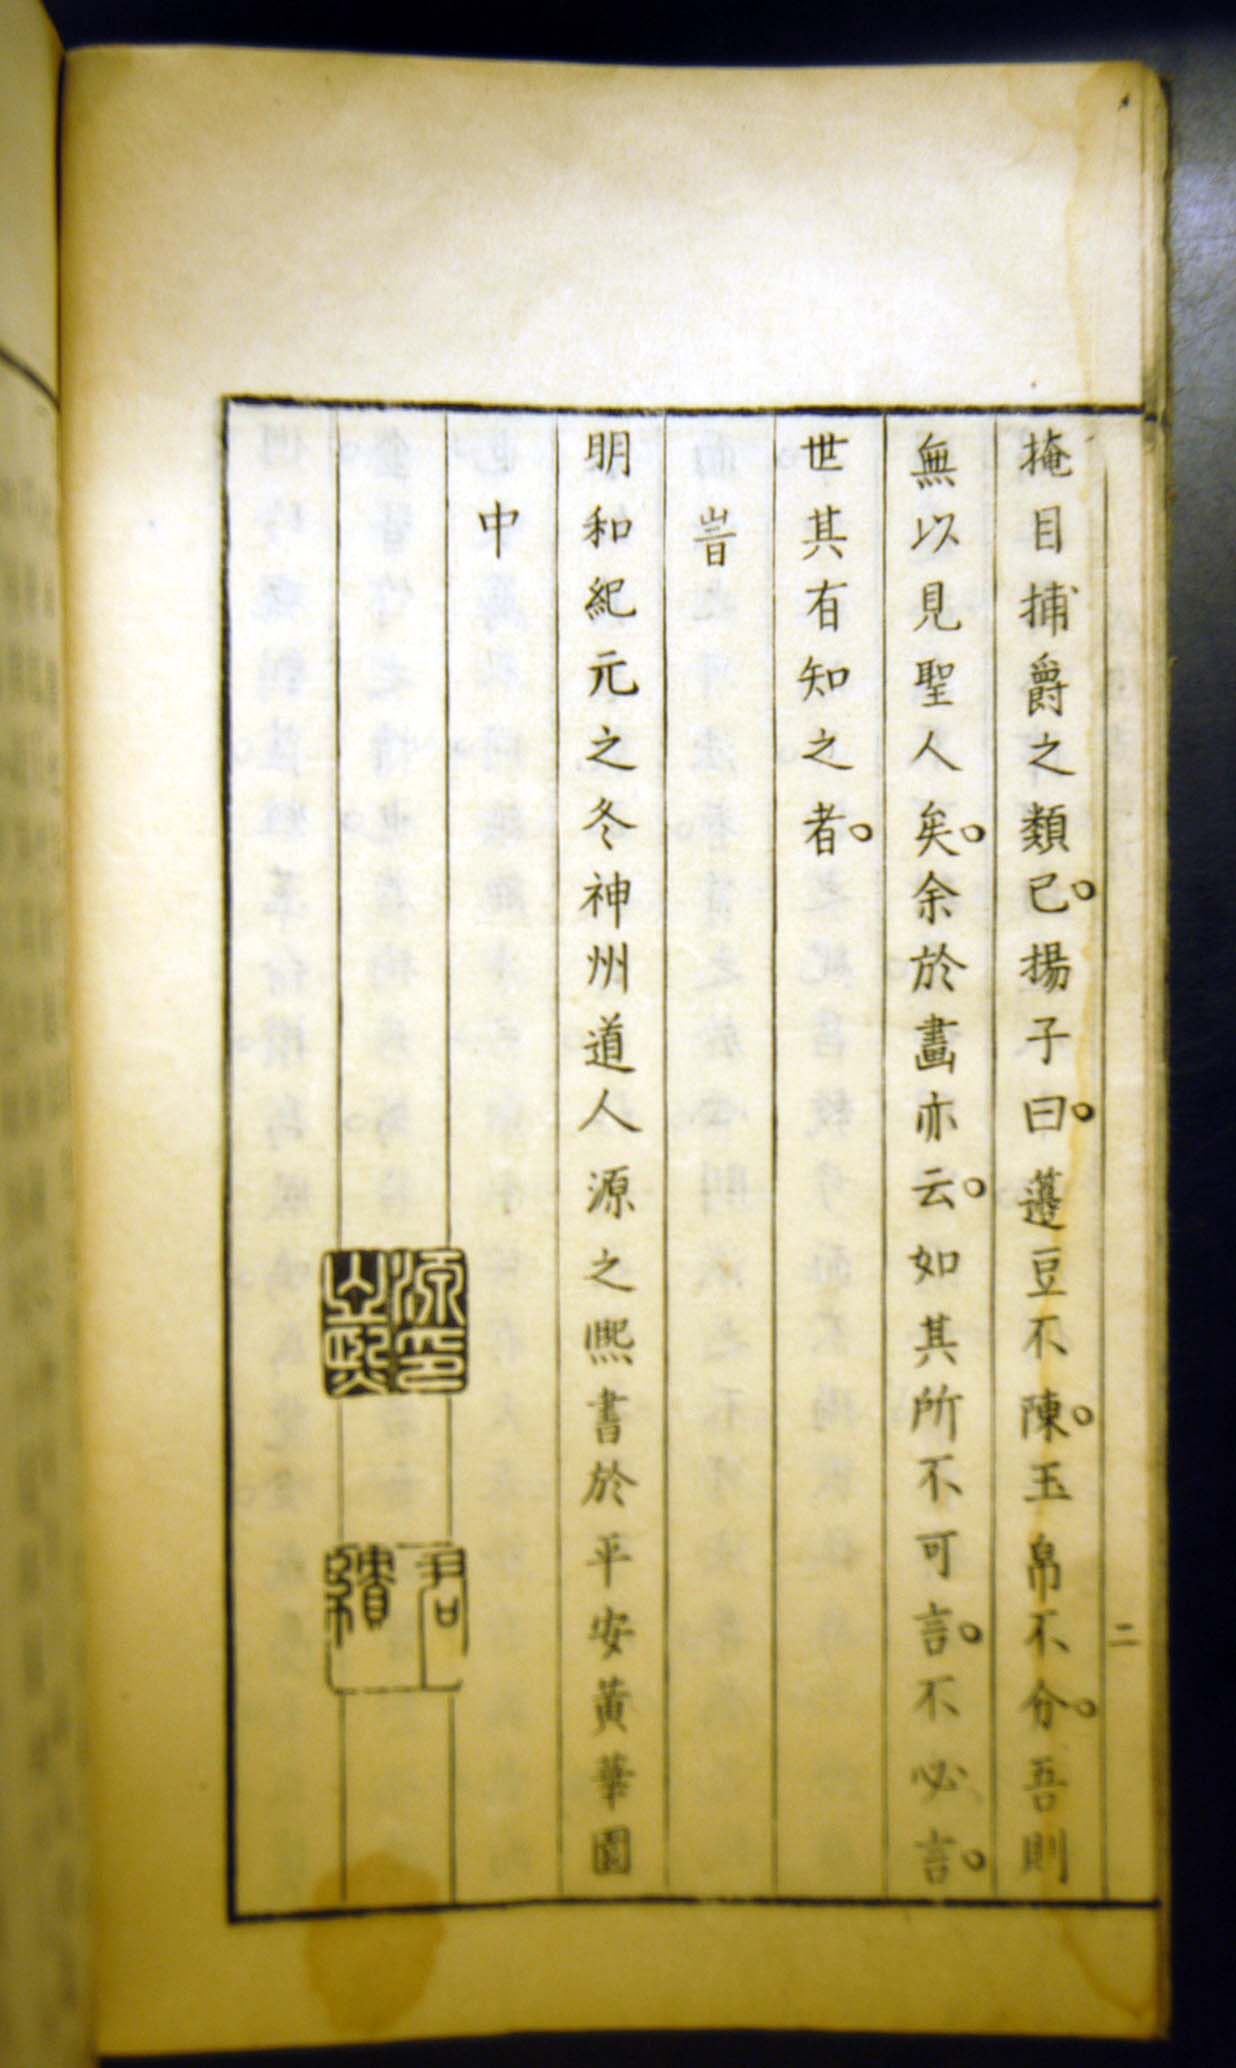 掩目捕爵之類已。揚子曰。籩豆不陳。玉帛不分。吾則
無以見聖人矣。余於畫亦云。如其所不可言。不必言。
世其有知之者。
旹
明和紀元之冬神州道人源之熙書於平安黃華園
中
源之熙印
君績
二